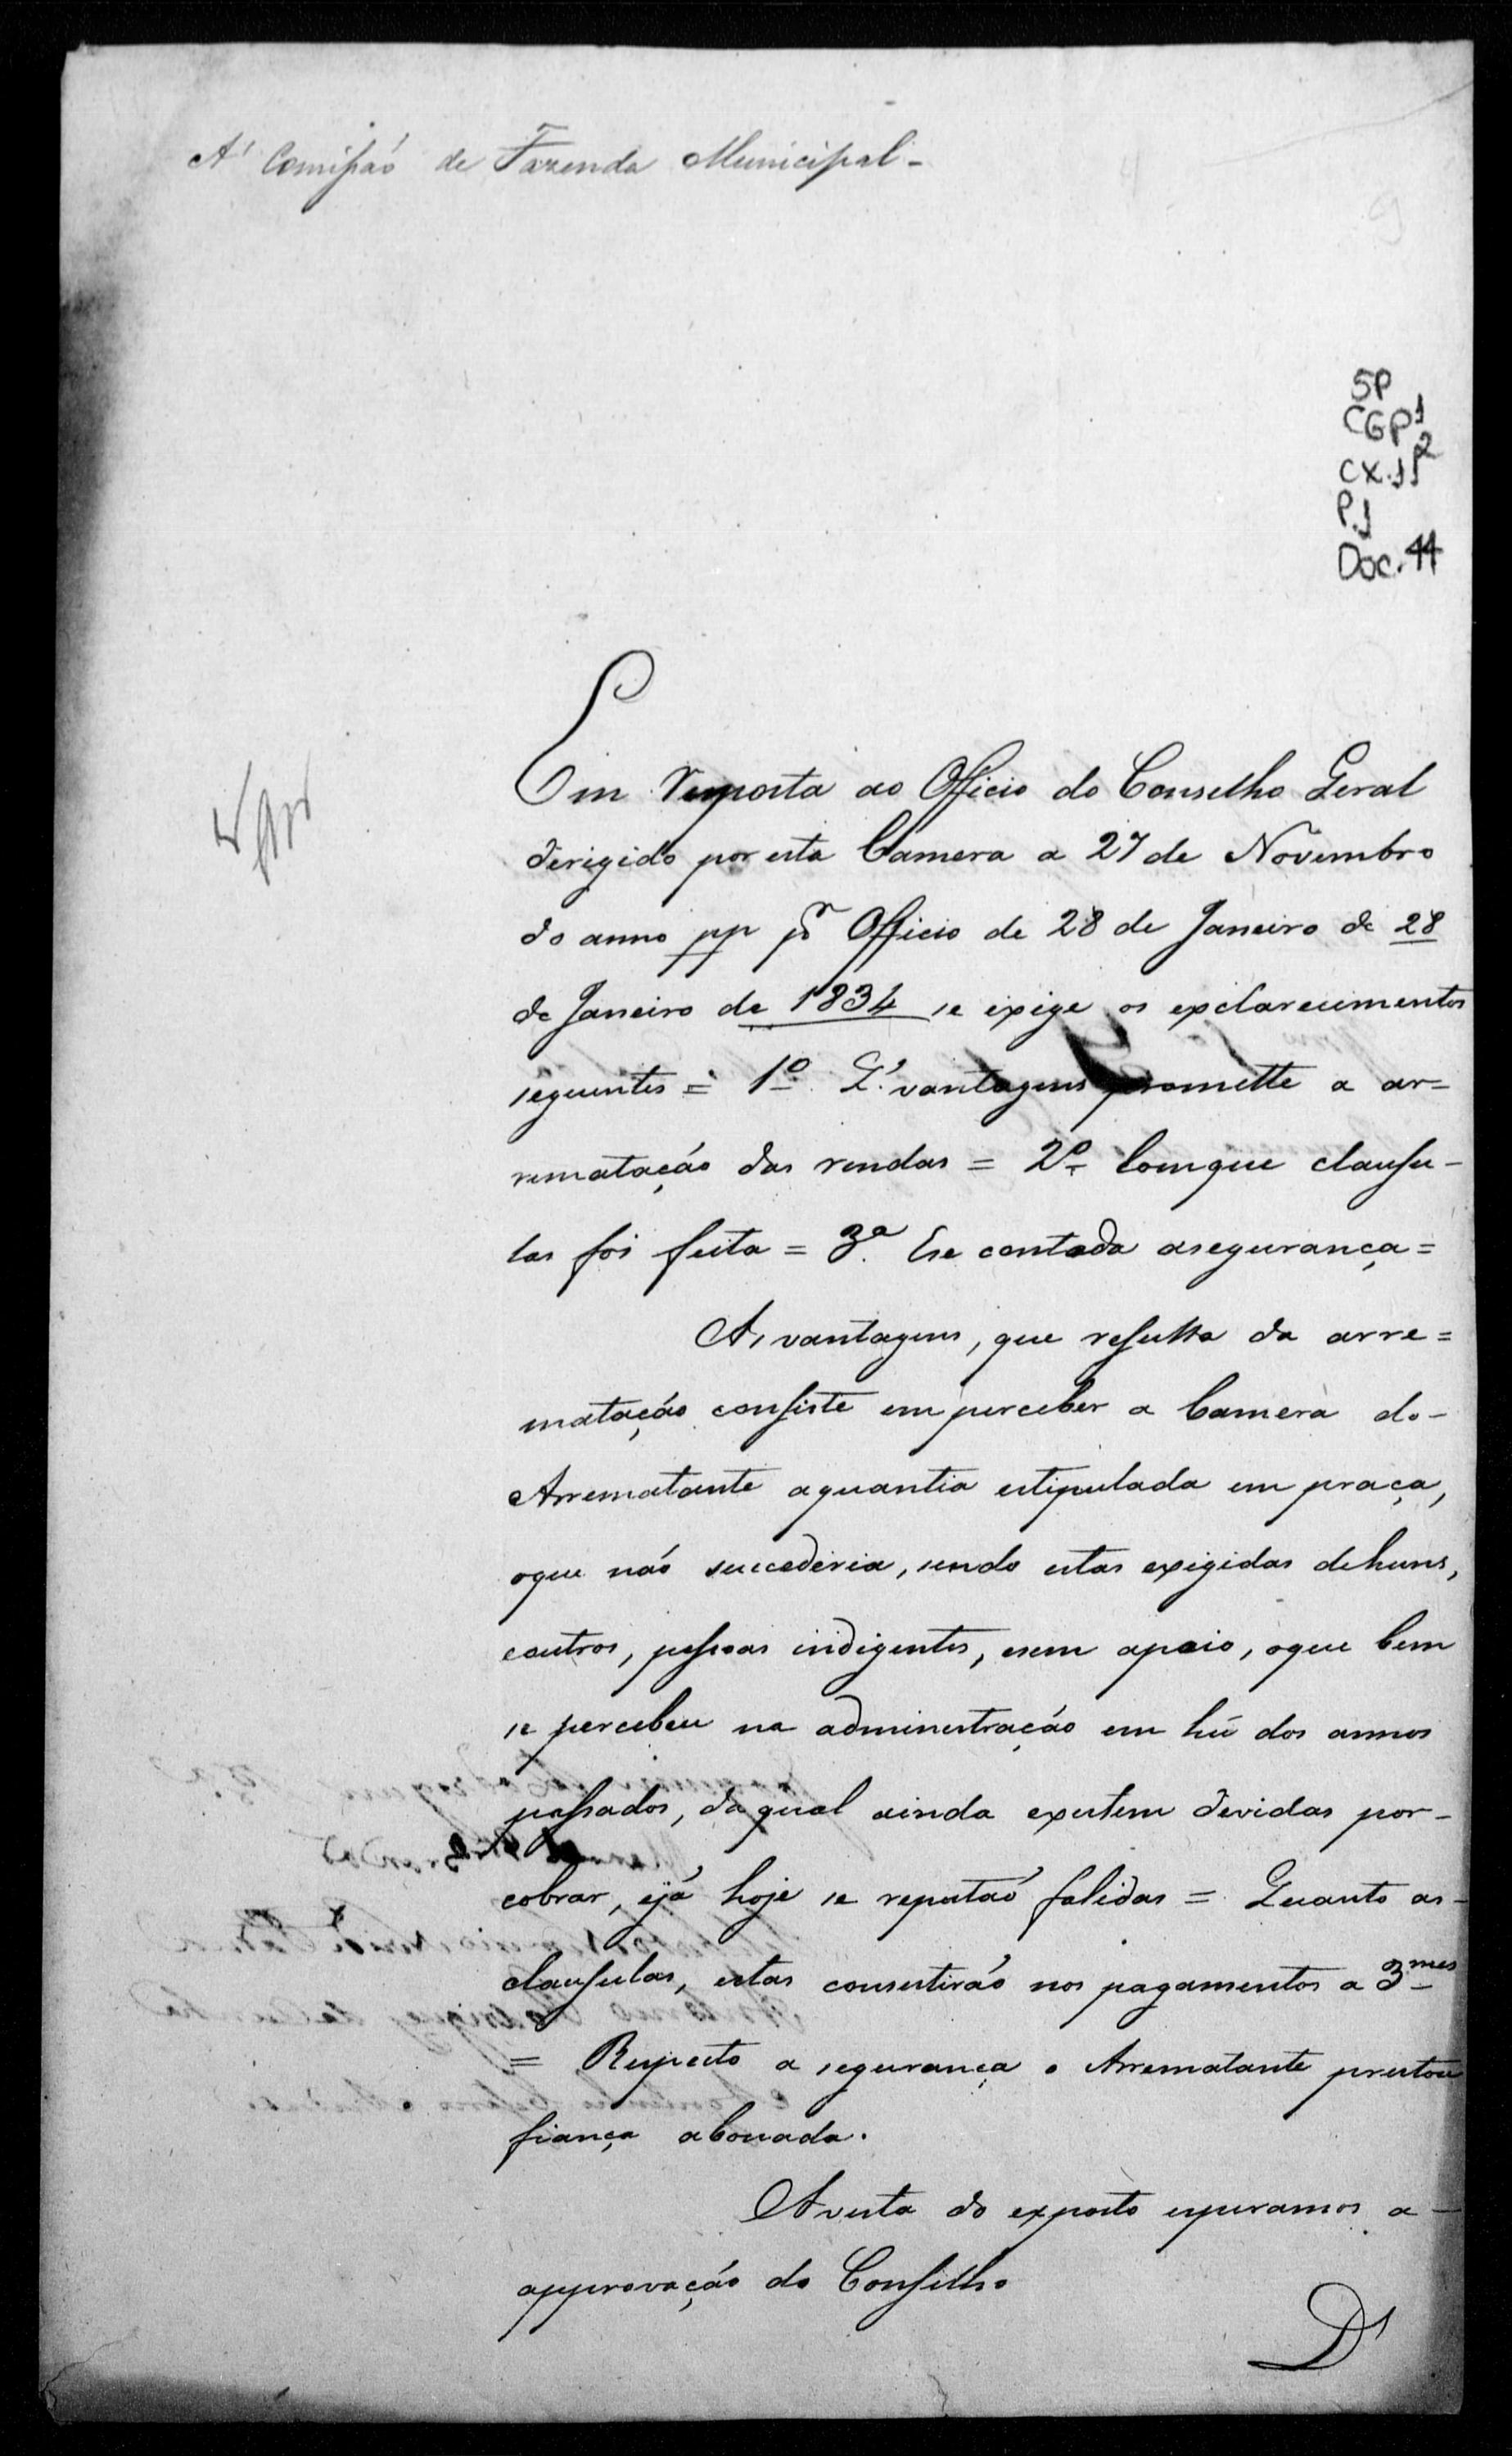 A' Comissaõ de Fazenda Municipal -
SP
CGP1
CX.11
P.1
Doc. 44
Em resposta ao Officio do Conselho Geral
derigido por esta Camera a 27 de Novembro
do anno pp pr Officio de 28 de Janeiro de 28
de Janeiro de 1834 se exige os exclarecimentos
seguintes = 1º Q' vantagens promette a ar=
rematação das rendas = 2ª Comque clausu-
las foi feita = 3ª Ese contada asegurança =
As vantagens, que resulta da arre=
matação consiste em perceber a Camera do-
Arrematante aquantia estipulada em praça,
oque não succederia, sendo estas exigidas dehuns,
eoutros, pessoas indigentes, esem apoio, oque bem
se percebeu na adminestração em hũ dos annos
passados, daqual ainda existem devidas por-
cobrar, ejá hoje se reputaõ falidas = Quanto as-
clausulas, estas consestirão nos pagamentos a 3 mes
= Respecto a segurança o Arrematante prestou
fiança abonada.
Avista do exposto esperamos a-
approvação do Conselho
D'